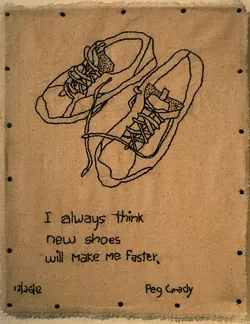 I always think
new shoes
will make me faster.
12/26/12
Peg Grady